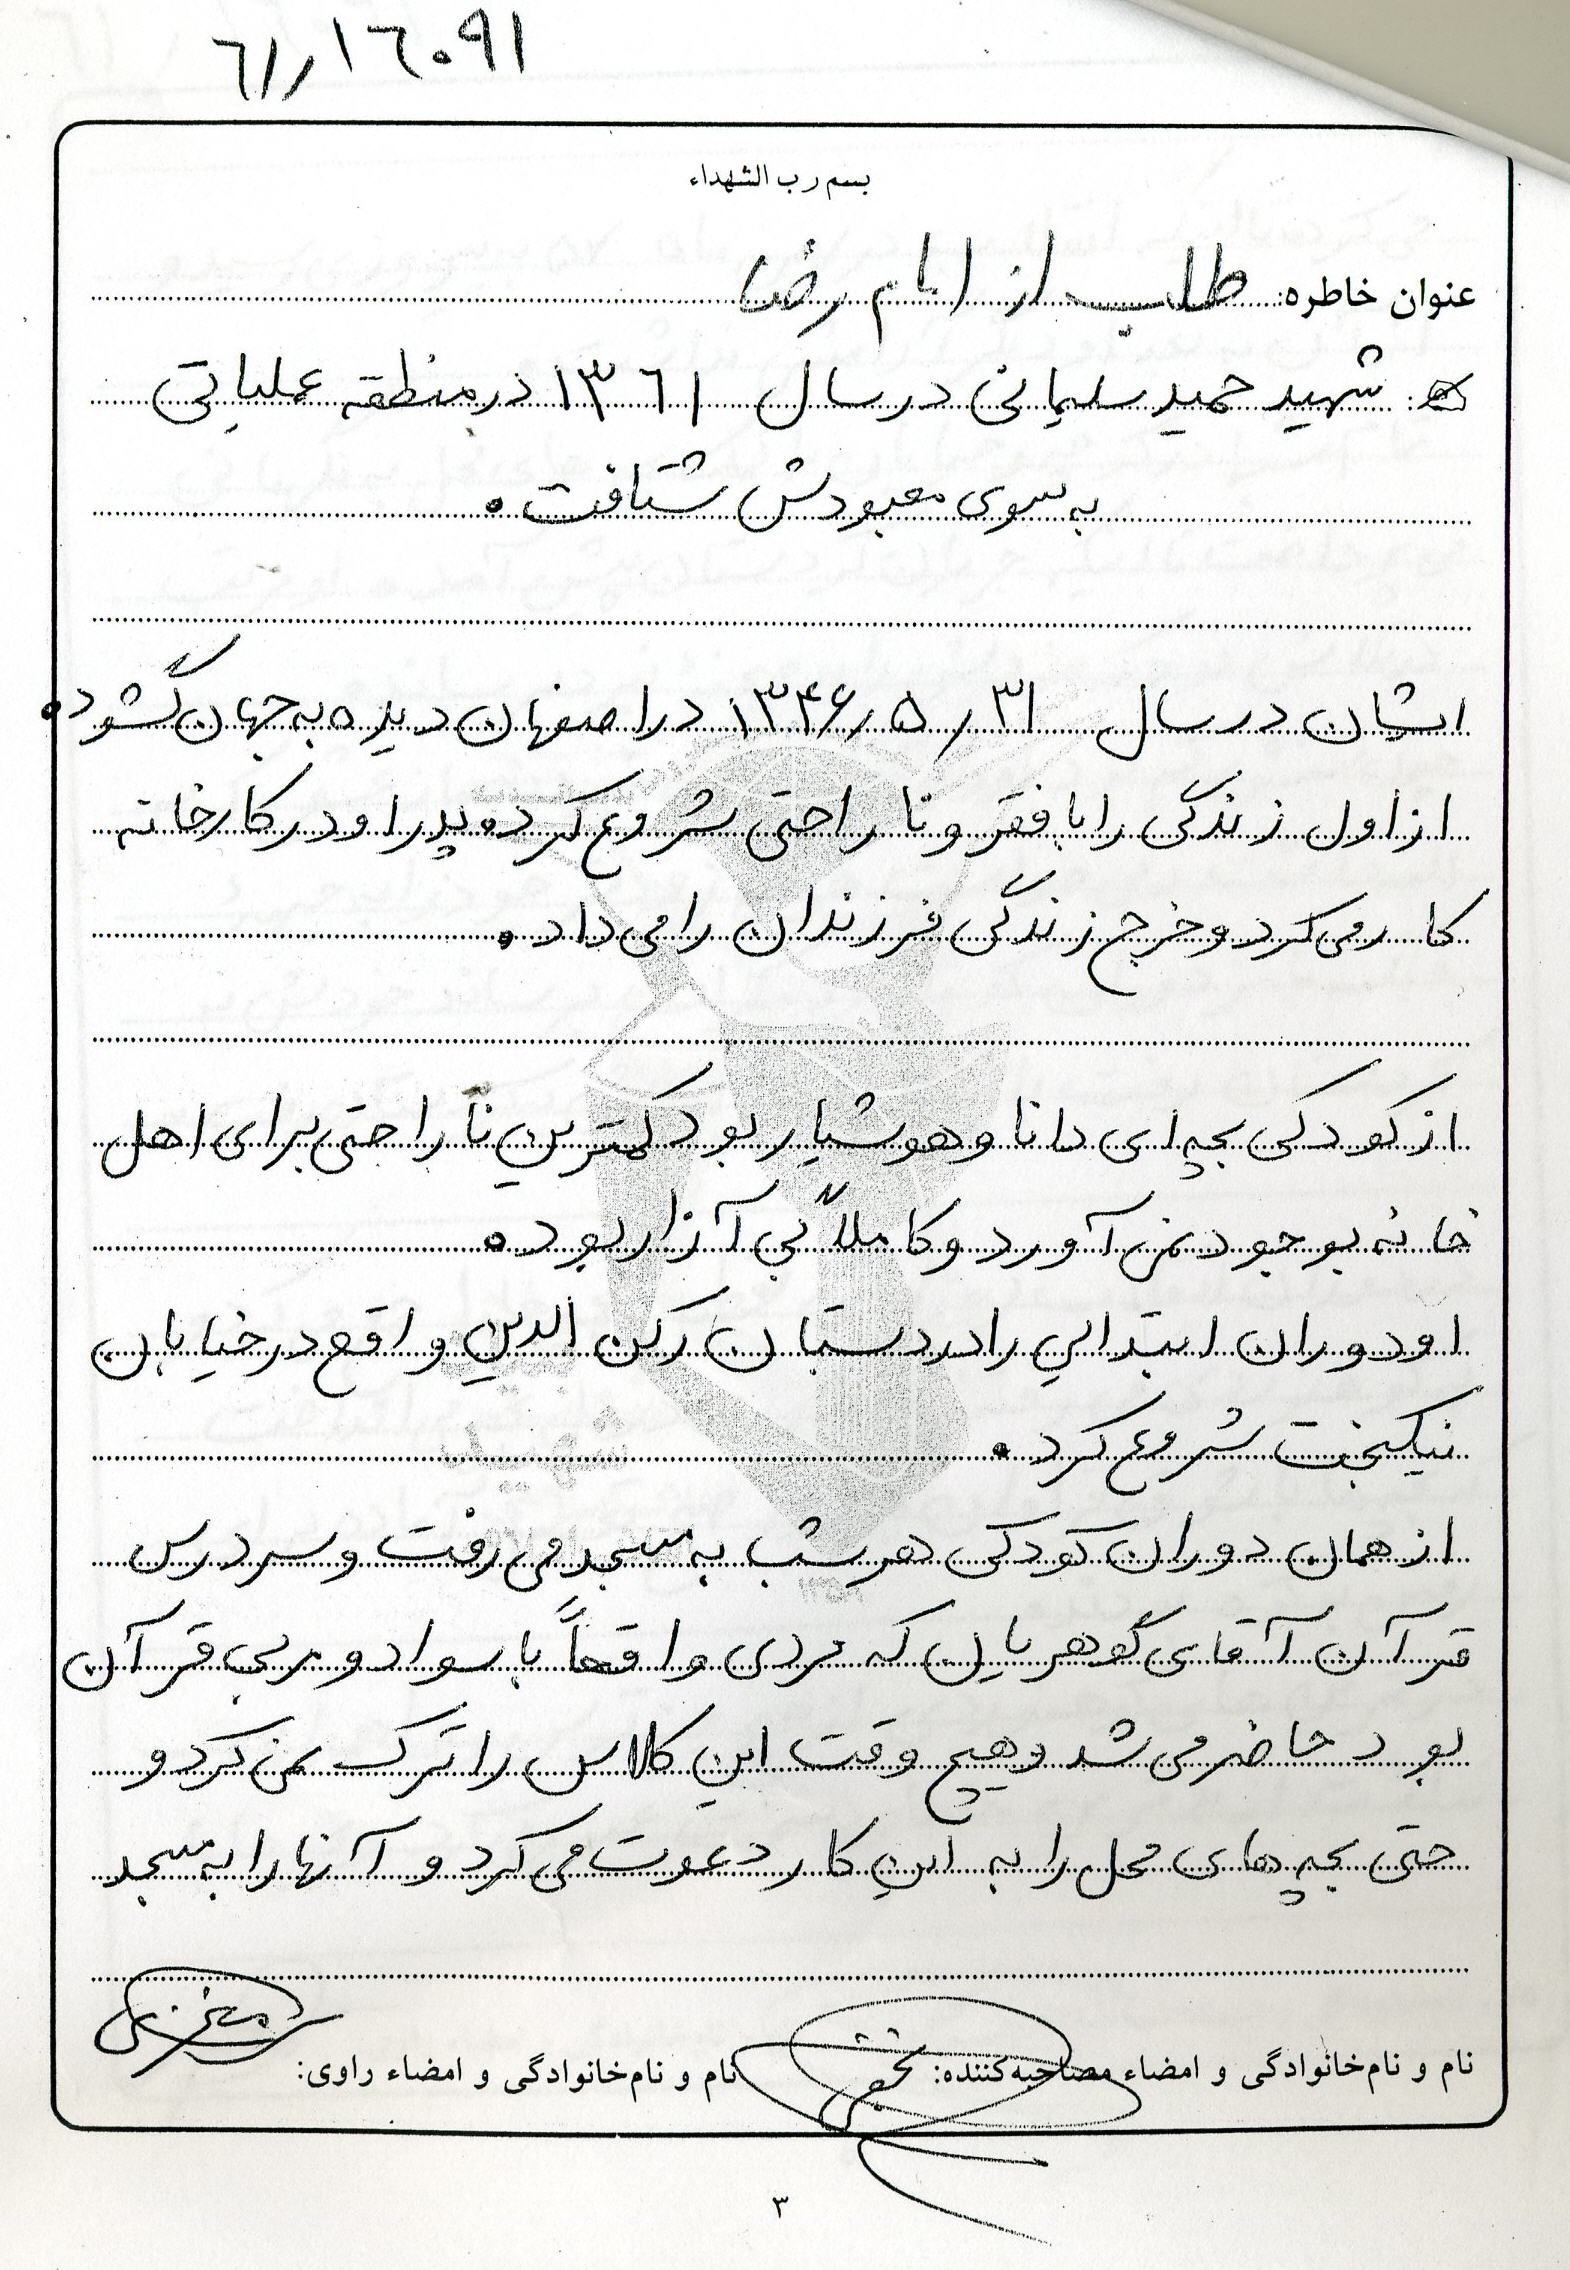 ٦١٫١٦٠٩١
بسم رب الشهداء
عنوان خاطره: طلب از امام رضا
شهید حمید سلیمانی در سال ١٣٦١ در منطقه عملیاتی
به سوی معبودش شتافت.
ایشان در سال ۱۳۴۶٫۵٫۳۱ در اصفهان دیده به جهان گشود.
از اول زندگی را با فقر و نا راحتی شروع کرد. پدر او در کارخانه
کار می کرد و خرج زندگی فرزندان را می داد.
از کودکی بچه ای دانا و هوشیار بود کمترین نا راحتی برای اهل
خانه بوجود نمی آورد و کاملاً بی آزار بود.
او دوران ابتدایی را در دبستان رکن الدین واقع در خیابان
نیکبخت شروع کرد.
از همان دوران کودکی هر شب به مسجد می رفت و سر درس
قرآن آقای گوهریان که مردی واقعاً با سواد و مربی قرآن
بود حاضر می شد و هیچ وقت این کلاس را ترک نمی کرد و
حتی بچه های محل را به این کار دعوت می کرد و آنها را به مسجد
نام و نام‌خانوادگی و امضاء مصاحبه‌کننده: نام و نام‌خانوادگی و امضاء راوی:
۳